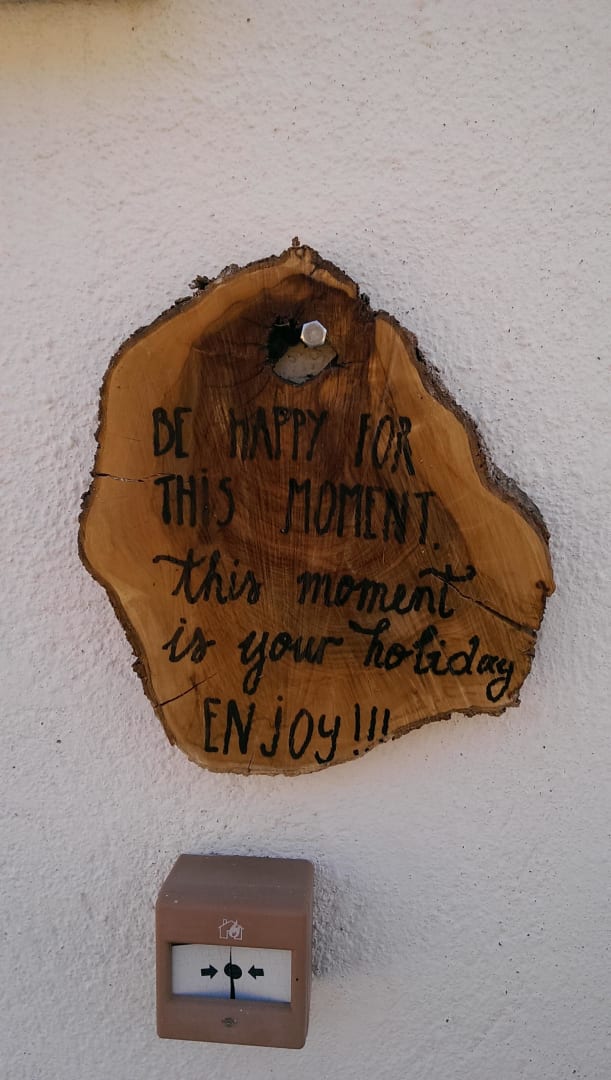 BE HAPPY FOR
THiS MOMENT.
this moment
is your holiday
ENjOy!!!